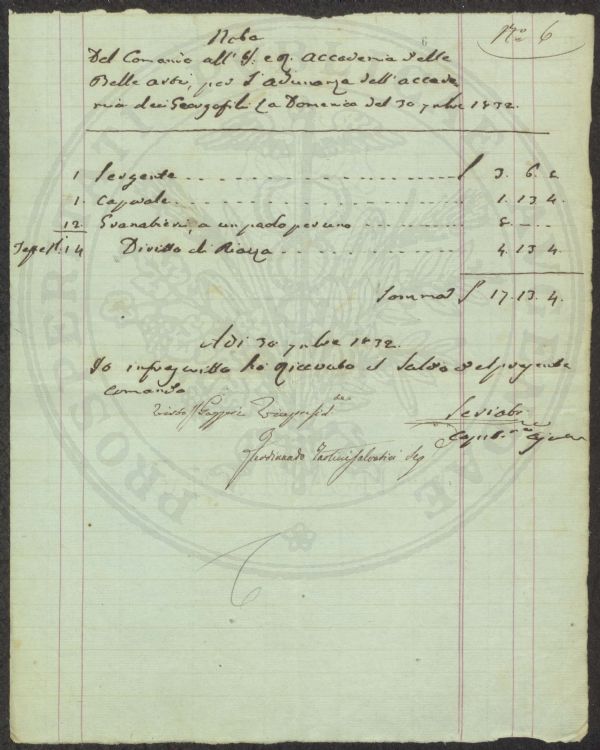 No 6
Nota
Del Comando all' I. e R. accademia delle
Belle arti, per l'adunanza dell'accade
mia dei Georgofili La Domenica del 30 7mbre 1832.
1 Sergente £ 3. 6. 8
1. Caporale 1. 13. 4
12 Granatieri, a un paolo per uno 8. — .
Teste N. 14 Diritto di Piazza 4. 13. 4
Somma £ 17. 13. 4.
Adi 30 7mbre 1832.
Io infrascritto ho ricevuto il saldo del presente
comando
Visto Gazzeri
Ferdinando Tartini Salvatici Seg
PROSPERITATI AUGENDAE